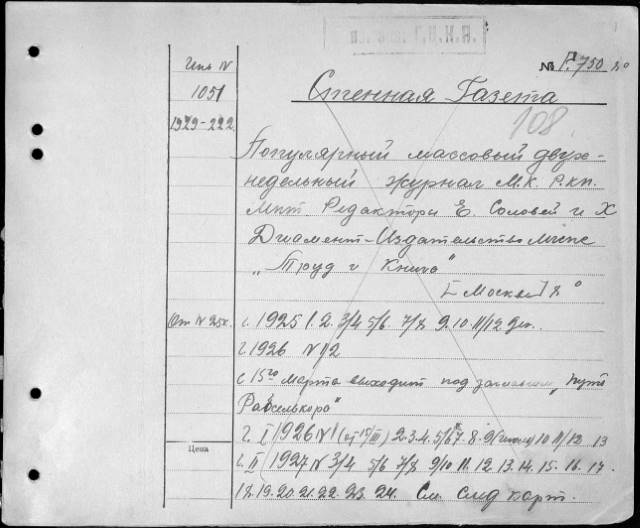 № F.750 8°
Инв N
1051
1929-222
Стенная Газета
108
Популярный массовый двух-
недельный журнал М.К. Р.К.П.
Редакторы Е. Соловей и Х
Диамент-Издательство Мгспс
„Труд и Книга"
[Москва] 8°
г. 1925 1. 2. 3/4 5/6. 7/8 9. 10. 11/12 дек.
г 1926 N 1/2
с 15го марта выходит под заглавием „Путь
Рабселькора"
г. I 1926 N 1 (от 15/III) 2.3.4. 5/6 7. 8. 9 10 11/12 13
Цена
г. II 1927 N 3/4 5/6 7/8 9/10 11. 12. 13. 14. 15. 16. 17.
18. 19. 20. 21. 22. 23. 24. См. след карт.